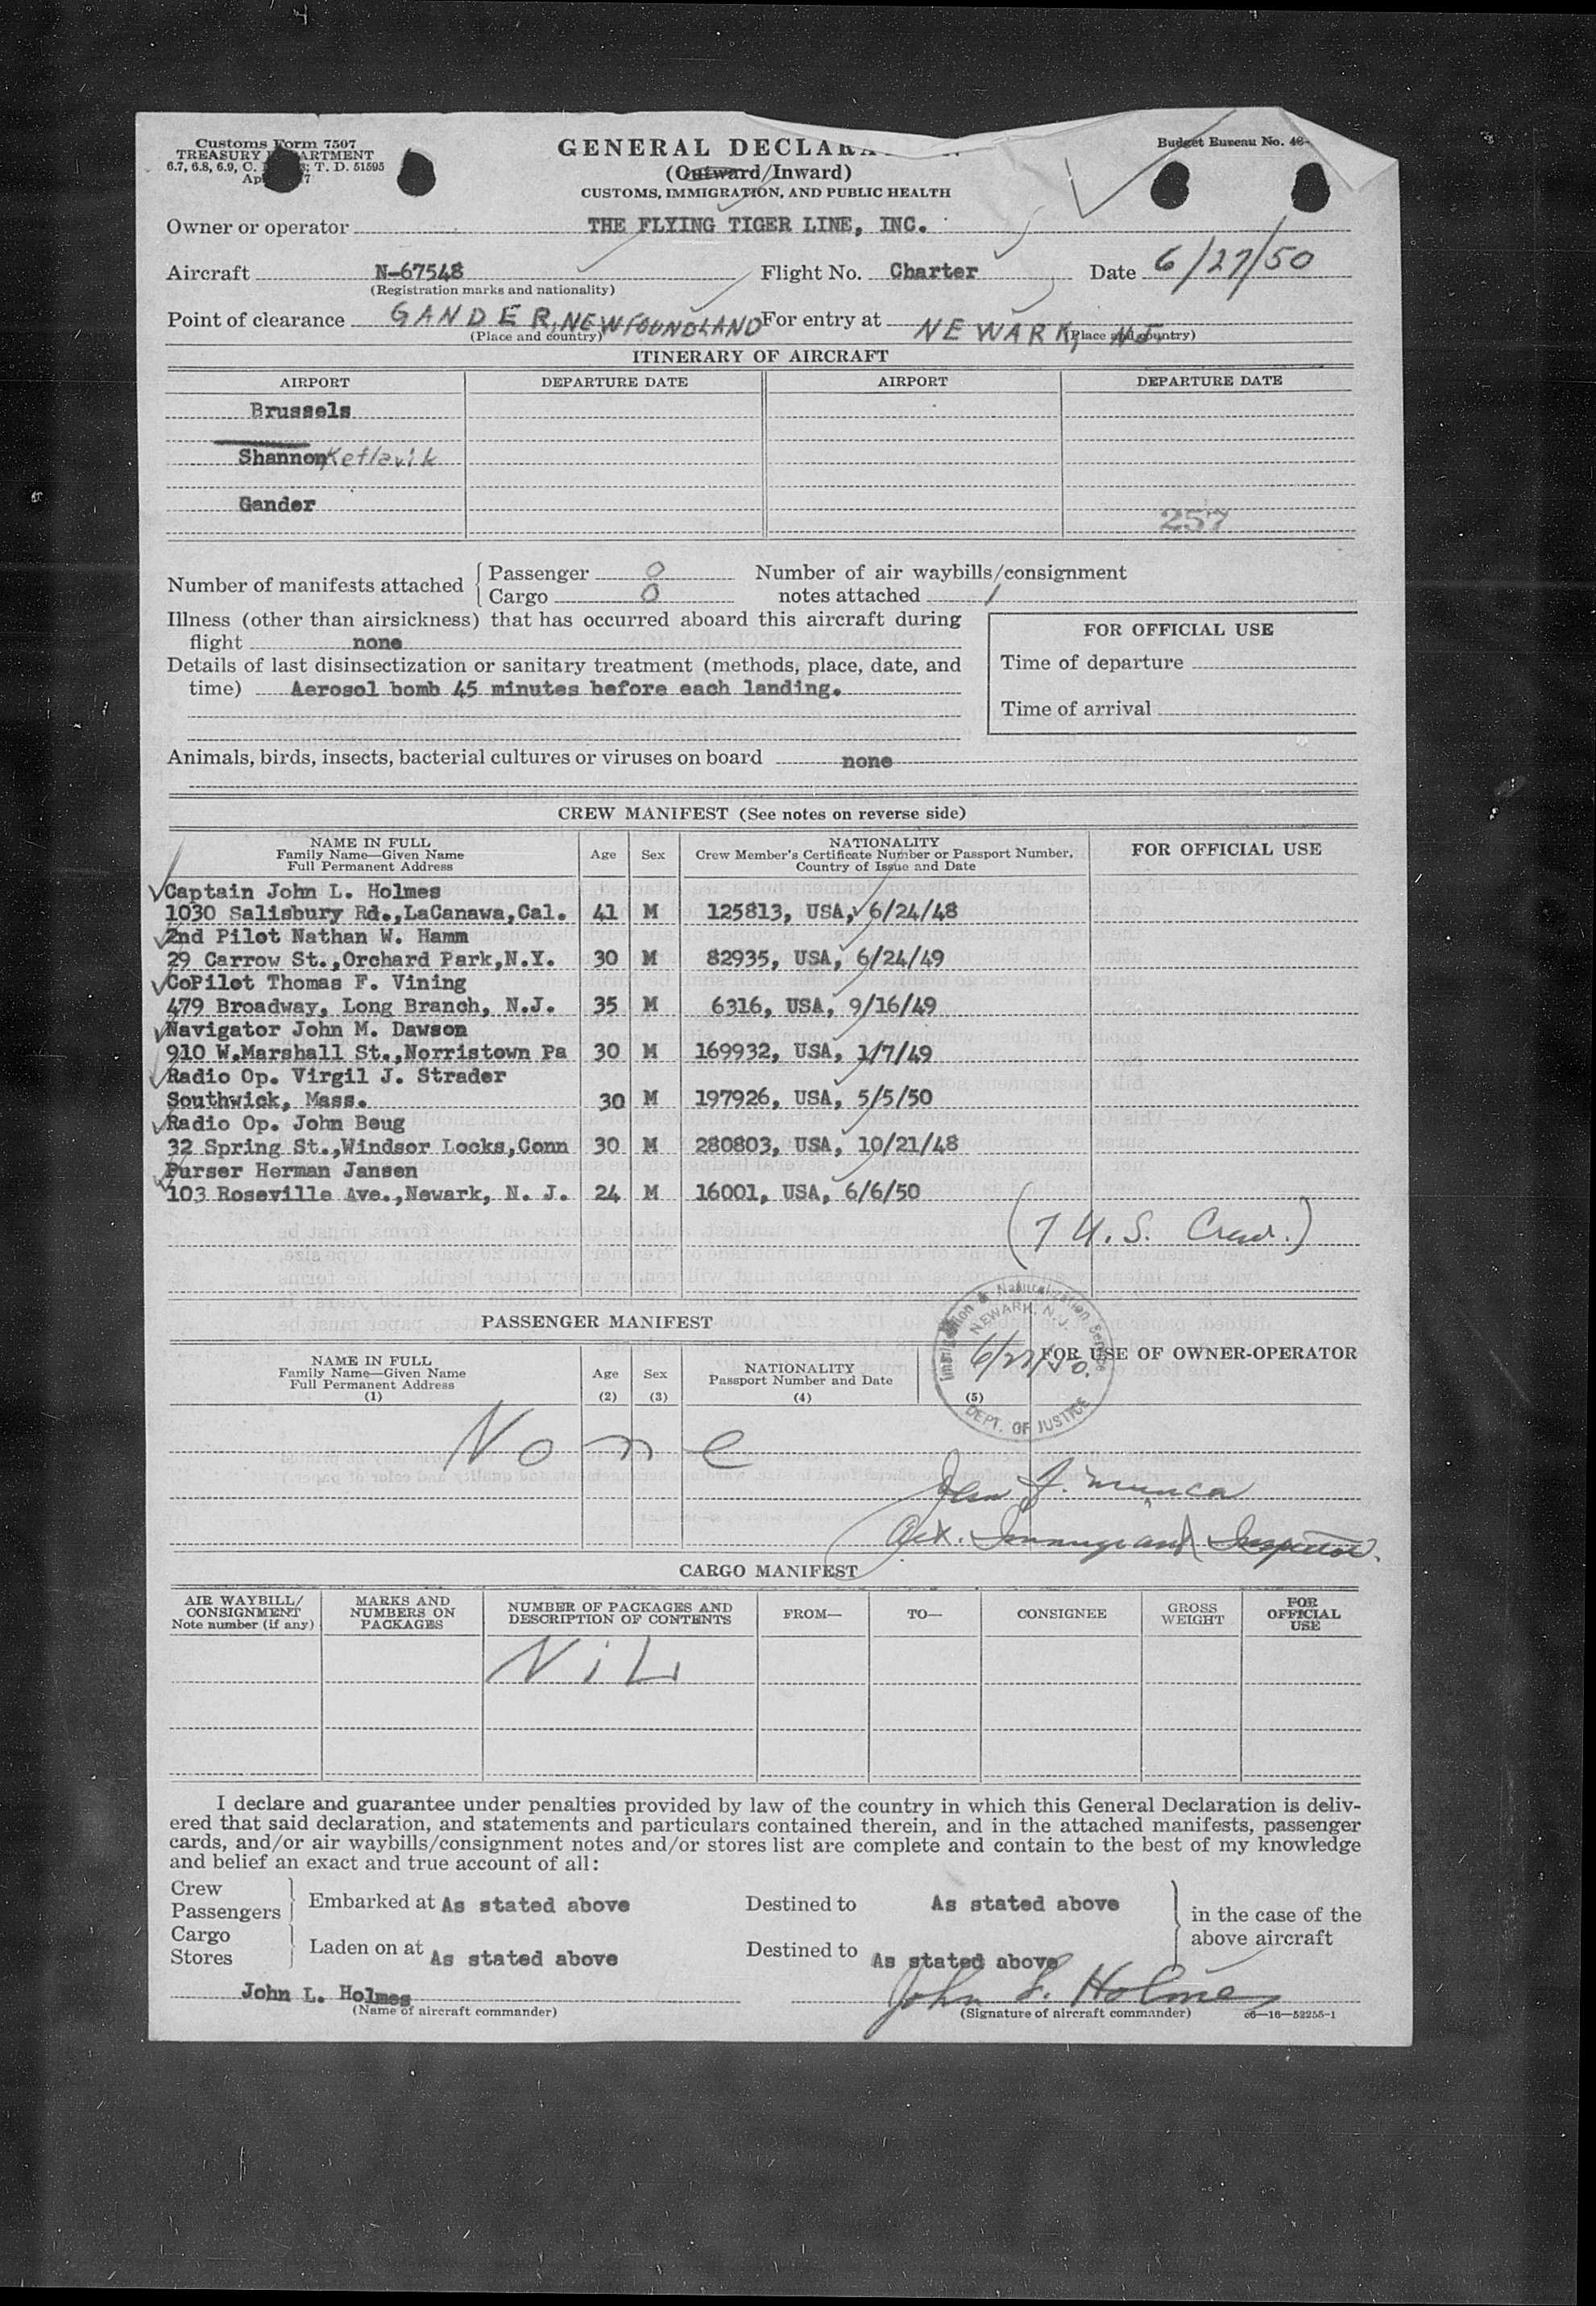 Customs Form 7507
TREASURY DEPARTMENT
6.7, 6.8, 6.9, C. T. D. 51595
GENERAL
(Outward/Inward)
CUSTOMS, IMMIGRATION, AND PUBLIC HEALTH
Budget Bureau No.
Owner or operator THE FLYING TIGER LINE, INC.
Aircraft N-67548 Flight No. Charter Date 6/27/50
(Registration marks and nationality)
Point of clearance GANDER, NEWFOUNDLAND For entry at NEWARK, NJ.
(Place and country) (Place and country)
ITINERARY OF AIRCRAFT
AIRPORT DEPARTURE DATE AIRPORT DEPARTURE DATE
Brussels
Shannon Keflavik
Gander
257
Number of manifests attached Passenger 0 Number of air waybills/consignment
Cargo 0 notes attached 1
Illness (other than airsickness) that has occurred aboard this aircraft during
flight none
FOR OFFICIAL USE
Details of last disinsectization or sanitary treatment (methods, place, date, and
time) Aerosol bomb 45 minutes before each landing.
Time of departure
Time of arrival
Animals, birds, insects, bacterial cultures or viruses on board none
CREW MANIFEST (See notes on reverse side)
NAME IN FULL
Family Name—Given Name
Full Permanent Address
Age Sex
NATIONALITY
Crew Member's Certificate Number or Passport Number,
Country of Issue and Date
FOR OFFICIAL USE
Captain John L. Holmes
1030 Salisbury Rd.,LaCanawa,Cal. 41 M 125813, USA, 6/24/48
2nd Pilot Nathan W. Hamm
29 Carrow St.,Orchard Park,N.Y. 30 M 82935, USA, 6/24/49
CoPilot Thomas F. Vining
479 Broadway, Long Branch, N.J. 35 M 6316, USA, 9/16/49
Navigator John M. Dawson
910 W.Marshall St.,Norristown Pa 30 M 169932, USA, 1/7/49
Radio Op. Virgil J. Strader
Southwick, Mass. 30 M 197926, USA, 5/5/50
Radio Op. John Beug
32 Spring St.,Windsor Locks,Conn 30 M 280803, USA, 10/21/48
Purser Herman Jansen
103 Roseville Ave.,Newark, N. J. 24 M 16001, USA, 6/6/50
(7 U.S. Crew.)
Immigration & Naturalization Service
NEWARK, N. J.
6/27/50.
DEPT. OF JUSTICE
PASSENGER MANIFEST
NAME IN FULL
Family Name—Given Name
Full Permanent Address
(1)
Age
(2)
Sex
(3)
NATIONALITY
Passport Number and Date
(4)
(5)
FOR USE OF OWNER-OPERATOR
None
Act. Immigrant Inspector.
CARGO MANIFEST
AIR WAYBILL/
CONSIGNMENT
Note number (if any)
MARKS AND
NUMBERS ON
PACKAGES
NUMBER OF PACKAGES AND
DESCRIPTION OF CONTENTS
FROM— TO— CONSIGNEE
GROSS
WEIGHT
FOR
OFFICIAL
USE
NiL
I declare and guarantee under penalties provided by law of the country in which this General Declaration is deliv-
ered that said declaration, and statements and particulars contained therein, and in the attached manifests, passenger
cards, and/or air waybills/consignment notes and/or stores list are complete and contain to the best of my knowledge
and belief an exact and true account of all:
Crew
Passengers Embarked at As stated above Destined to As stated above
Cargo
Stores Laden on at As stated above Destined to As stated above
in the case of the
above aircraft
John L. Holmes John L. Holmes
(Name of aircraft commander) (Signature of aircraft commander) c6—16—52255-1